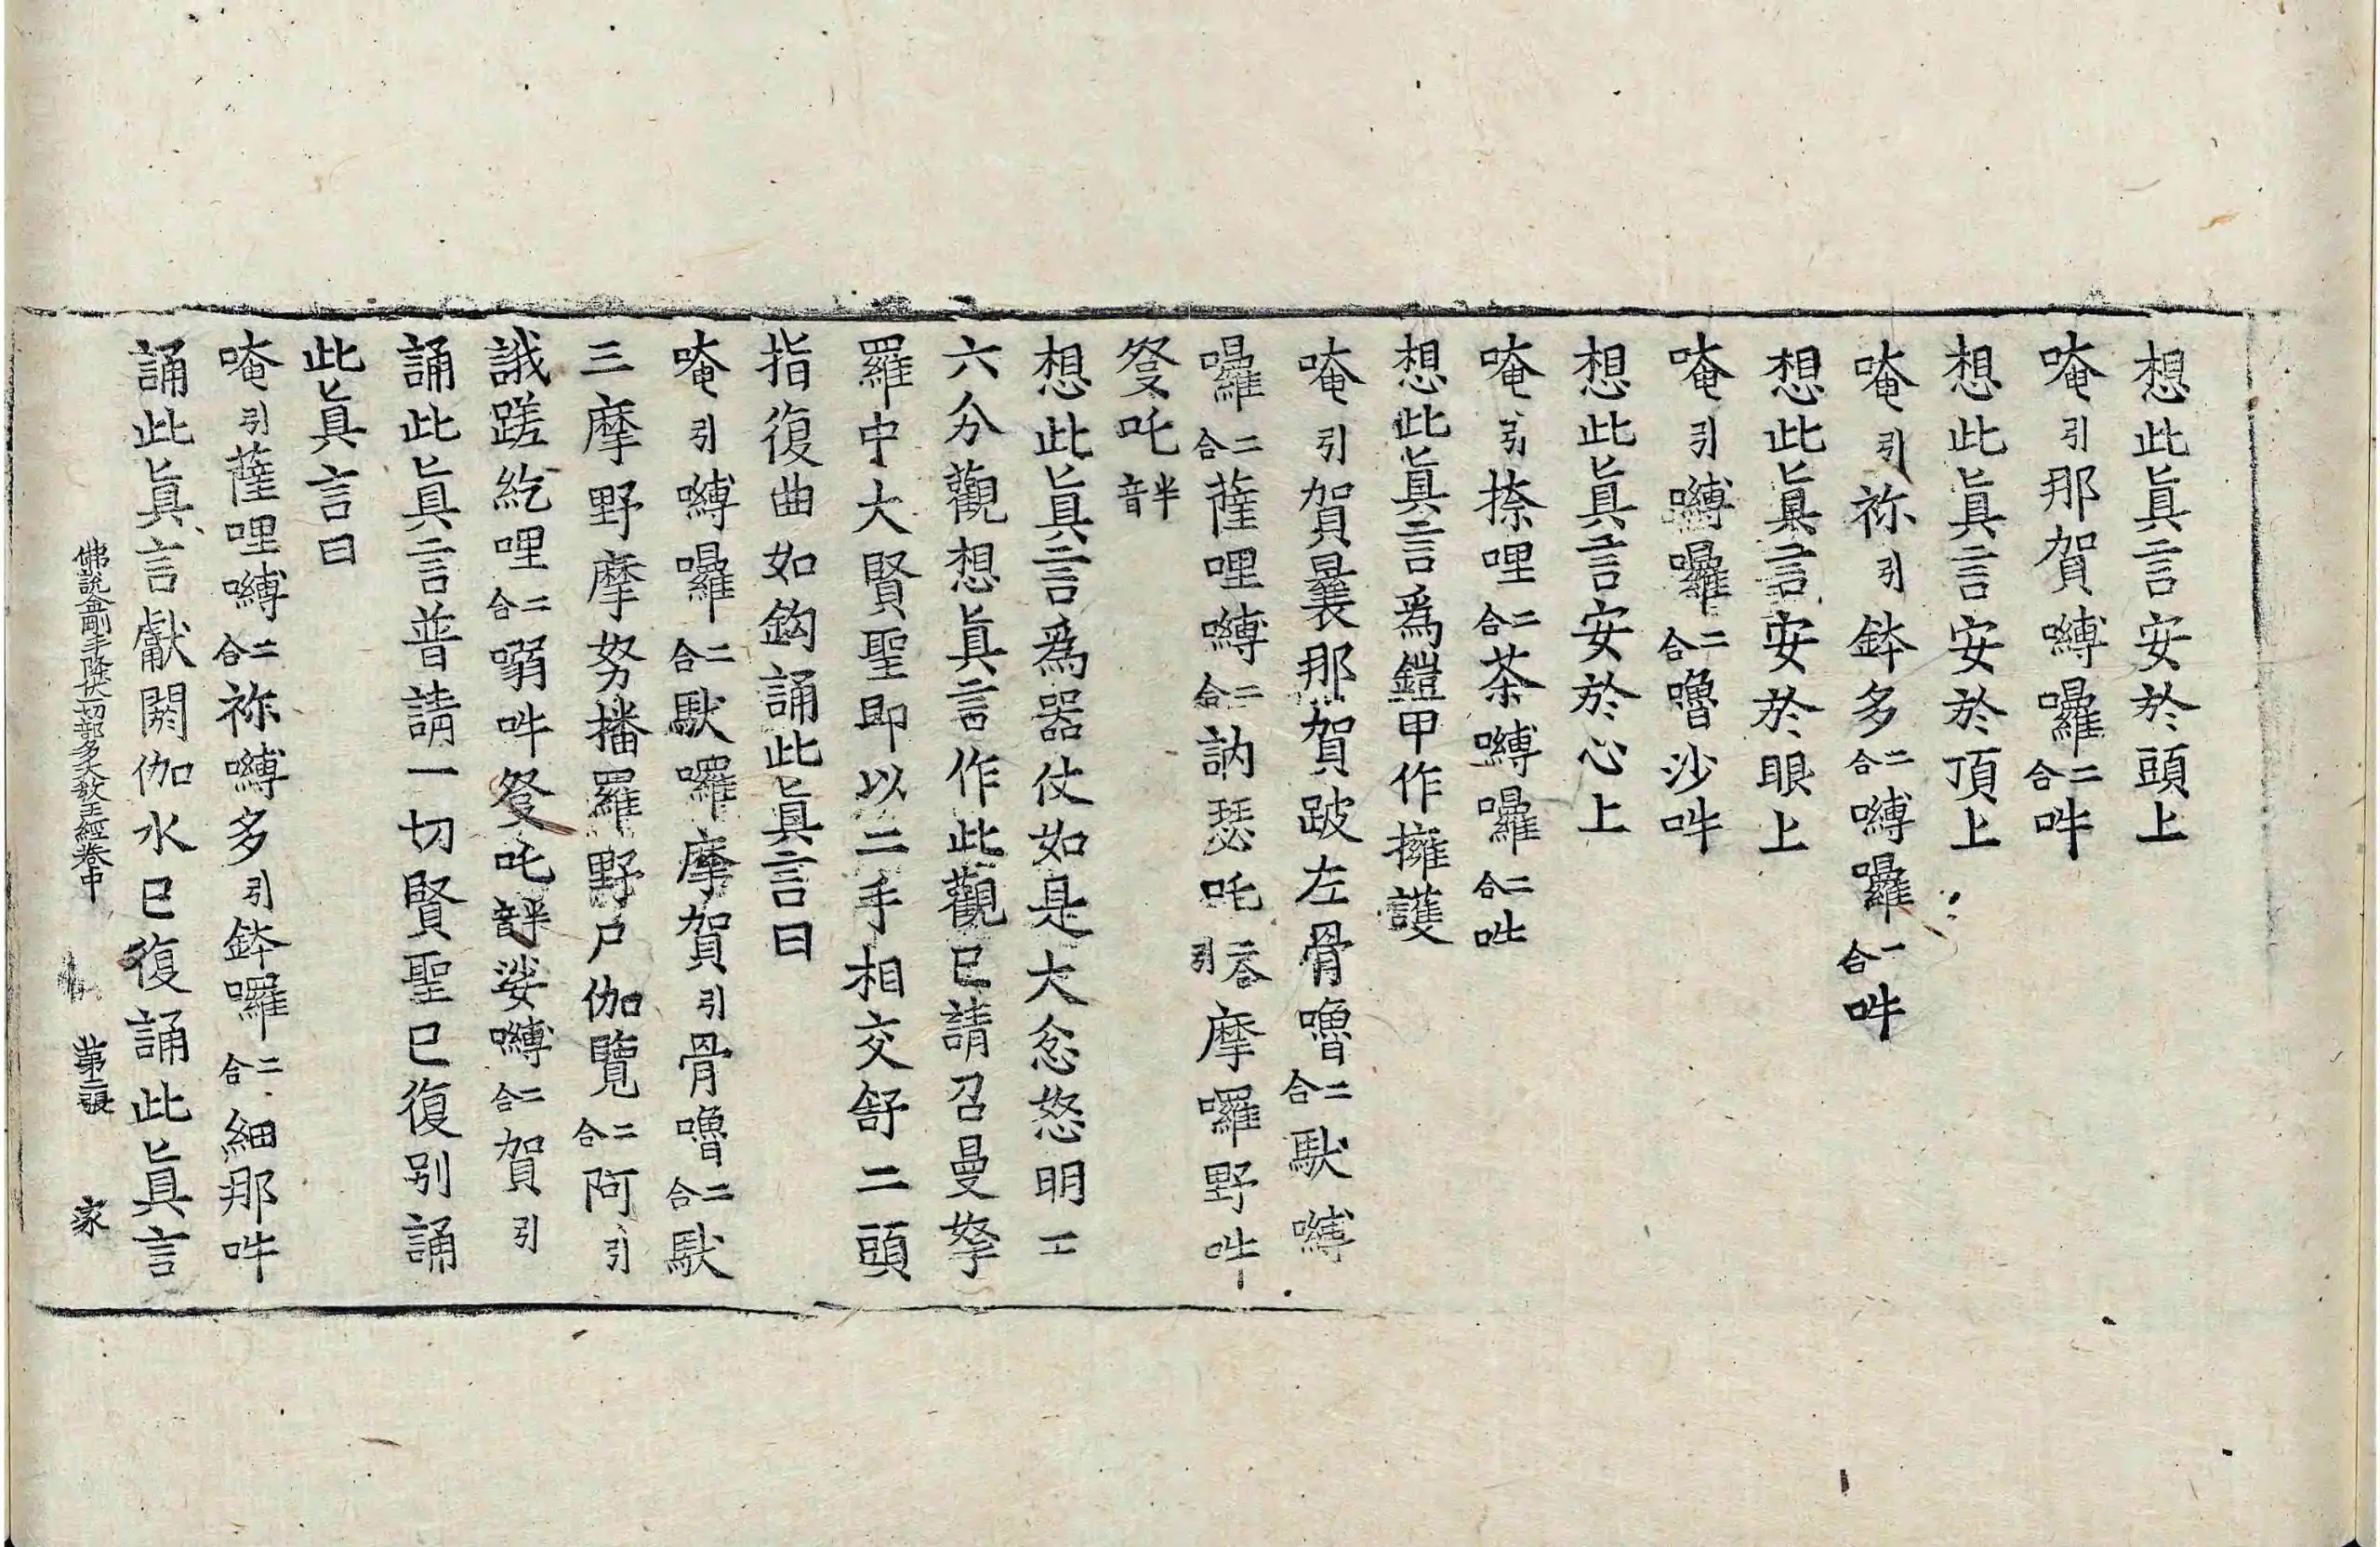 想此眞言安於頭上
唵引那賀嚩囉二合吽
想此眞言安於頂上
唵引祢引鉢多二合嚩囉一合吽
想此眞言安於眼上
唵引嚩囉二合嚕沙吽
想此眞言安於心上
唵引捺哩二合茶嚩囉二合吽
想此眞言爲鎧甲作擁護
唵引賀曩那賀跛左骨嚕二合馱嚩
囉二合薩哩嚩二合訥瑟吒二合引摩囉野吽
癹吒半音
想此眞言爲器仗如是大忿怒明二
六分觀想眞言作此觀已請召曼拏
羅中大賢聖即以二手相交舒二頭
指復曲如鈎誦此眞言曰
唵引嚩囉二合馱囉摩賀引骨嚕二合馱
三摩野摩努播羅野尸伽覽二合阿引
誐蹉紇哩二合嗍吽癹吒半音娑嚩二合賀引
誦此眞言普請一切賢聖已復別誦
此眞言曰
唵引薩哩嚩二合祢嚩多引鉢囉二合細那吽
誦此眞言獻閼伽水已復誦此眞言
佛說金剛手降伏一切部多大敎王經卷中 第二張 家